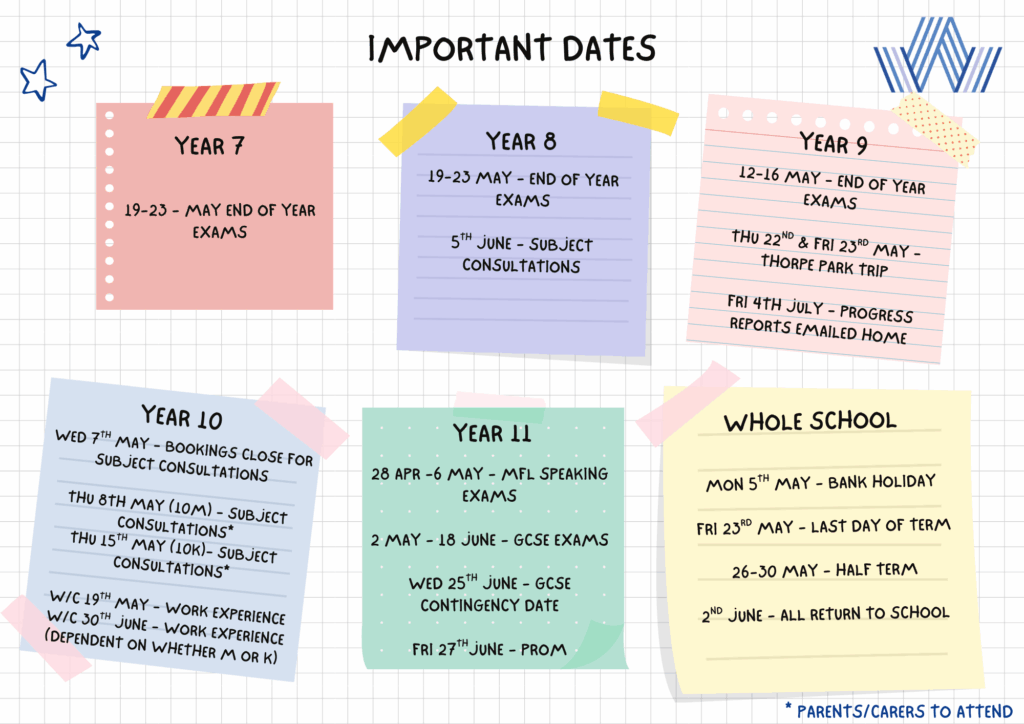 IMPORTANT DATES
YEAR 7
19-23 - MAY END OF YEAR
EXAMS
YEAR 8
19-23 MAY - END OF YEAR
EXAMS
5TH JUNE - SUBJECT
CONSULTATIONS
YEAR 9
12-16 MAY - END OF YEAR
EXAMS
THU 22ND & FRI 23RD MAY -
THORPE PARK TRIP
FRI 4TH JULY - PROGRESS
REPORTS EMAILED HOME
YEAR 10
WED 7TH MAY - BOOKINGS CLOSE FOR
SUBJECT CONSULTATIONS
THU 8TH MAY (10M) - SUBJECT
CONSULTATIONS*
THU 15TH MAY (10K)- SUBJECT
CONSULTATIONS*
W/C 19TH MAY - WORK EXPERIENCE
W/C 30TH JUNE - WORK EXPERIENCE
(DEPENDENT ON WHETHER M OR K)
YEAR 11
28 APR -6 MAY - MFL SPEAKING
EXAMS
2 MAY - 18 JUNE - GCSE EXAMS
WED 25TH JUNE - GCSE
CONTINGENCY DATE
FRI 27TH JUNE - PROM
WHOLE SCHOOL
MON 5TH MAY - BANK HOLIDAY
FRI 23RD MAY - LAST DAY OF TERM
26-30 MAY - HALF TERM
2ND JUNE - ALL RETURN TO SCHOOL
* PARENTS/CARERS TO ATTEND